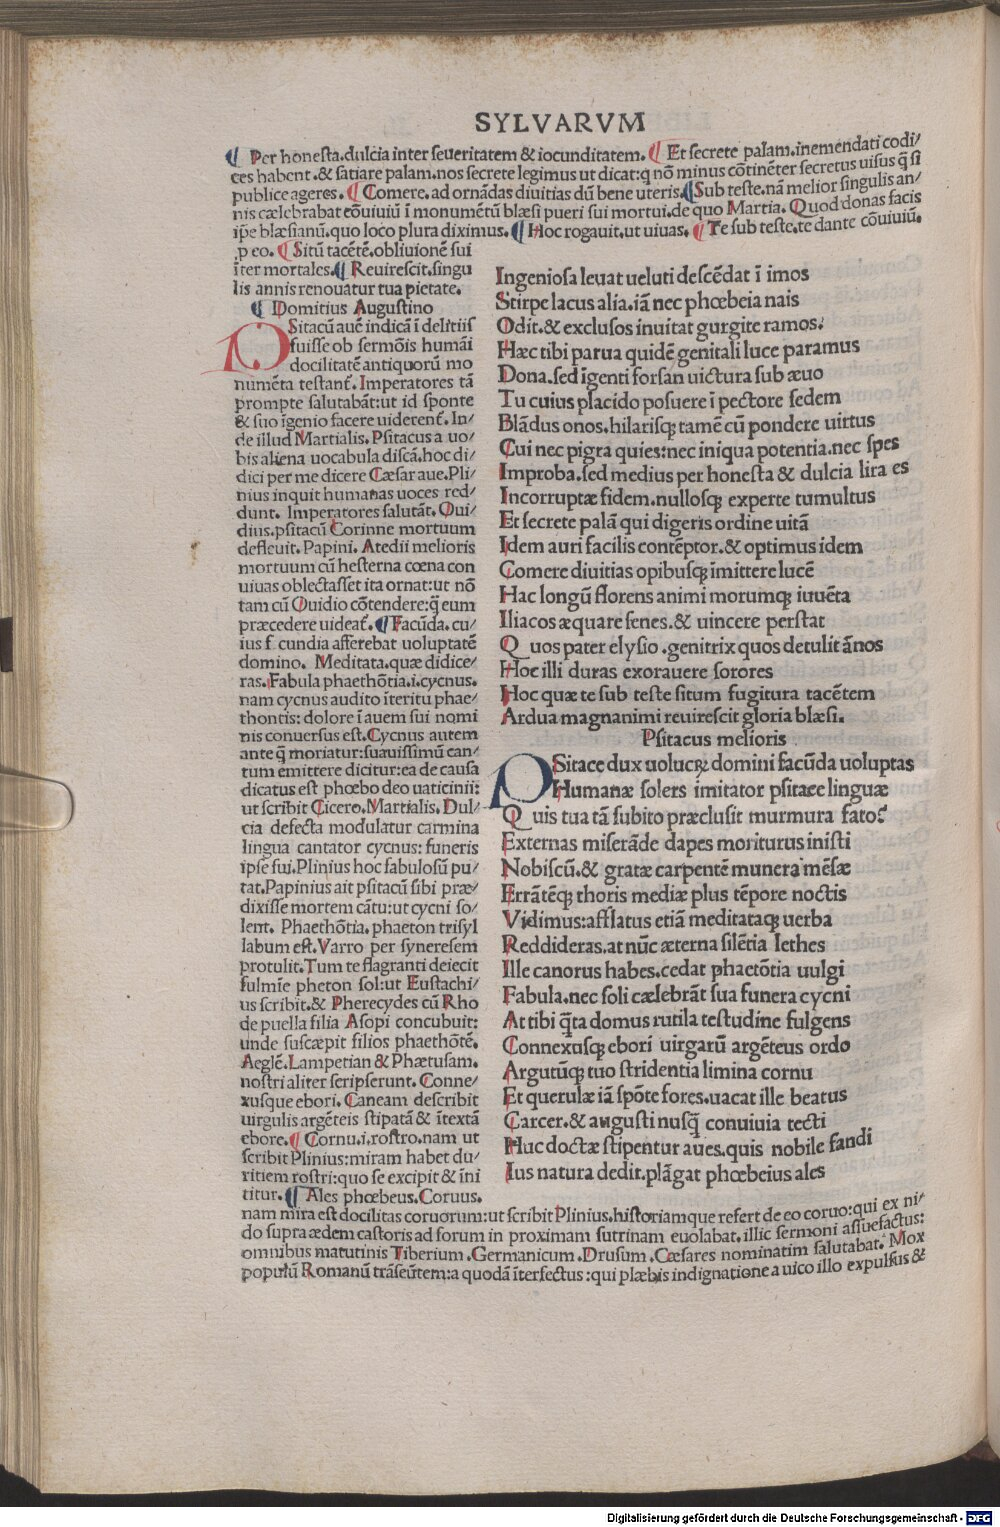 SYLVARVM
¶ Per honesta.dulcia inter seueritatem & iocunditatem. ¶ Et secrete palam.inemendati codi/
ces habent.& satiare palam.nos secrete legimus ut dicat:q nō minus cōtinēter secretus uisus q̄ si
publice ageres. ¶ Comere.ad ornādas diuitias dū bene uteris.¶ Sub teste.nā melior singulis an/
nis cælebrabat cōuiuiū ī monumētū blæsi pueri sui mortui.de quo Martia. Quod donas facis
ip̄e blæsianū.quo loco plura diximus. ¶ Hoc rogauit.ut uiuas. ¶ Te sub teste.te dante cōuiuiū.
p eo. ¶ Sitū tacētē.obliuionē sui
īter mortales.¶ Reuirescit.singu
lis annis renouatur tua pietate.
¶ Domitius Augustino
PSitacū auē indicā ī delitiis
fuisse ob sermōis humāi
docilitatē antiquorū mo
numēta testant̄. Imperatores tā
prompte salutabāt:ut id sponte
& suo īgenio facere uiderent̄. In/
de illud Martialis. Psitacus a uo/
bis aliena uocabula discā.hoc di/
dici per me dicere Cæsar aue.Pli/
nius inquit humanas uoces red/
dunt. Imperatores salutāt. Oui/
dius.psitacū Corinne mortuum
defleuit. Papini. Atedii melioris
mortuum cū hesterna cœna con
uiuas oblectasset ita ornat:ut nō
tam cū Ouidio cōtendere:q̄ eum
præcedere uideat̄.¶ Facūda. cu/
ius f cundia afferebat uoluptatē
domino. Meditata.quæ didice/
ras.Fabula phaethōtia.i.cycnus.
nam cycnus audito īteritu phae/
thontis: dolore ī auem sui nomi
nis conuersus est. Cycnus autem
ante q̄ moriatur:suauissimū can/
tum emittere dicitur:ea de causa
dicatus est phœbo deo uaticinii:
ut scribit Cicero.Martialis. Dul/
cia defecta modulatur carmina
lingua cantator cycnus: funeris
ipse sui.Plinius hoc fabulosū pu/
tat.Papinius ait psitacū sibi præ/
dixisse mortem cātu:ut cycni so/
lent. Phaethōtia. phaeton trisyl
labum est.Varro per syneresem
protulit.Tum te flagranti deiecit
fulmīe pheton sol:ut Eustachi/
us scribit.& Pherecydes cū Rho
de puella filia Asopi concubuit:
unde suscæpit filios phaethōtē.
Aeglē.Lampetian & Phætusam.
nostri aliter scripserunt. Conne/
xusque ebori. Caneam describit
uirgulis argēteis stipatā & ītextā
ebore.¶ Cornu.i.rostro.nam ut
scribit Plinius:miram habet du/
ritiem rostri:quo se excipit & īni
titur. ¶ Ales phœbeus. Coruus.
nam mira est docilitas coruorum:ut scribit Plinius.historiamque refert de eo coruo:qui ex ni/
do supra ædem castoris ad forum in proximam sutrinam euolabat.illic sermoni assuefactus:
omnibus matutinis Tiberium .Germanicum .Drusum .Cæsares nominatim salutabat. Mox
populū Romanū trāseūtem:a quodā īterfectus :qui plæbis indignatione a uico illo expulsus &
Ingeniosa leuat ueluti descēdat ī imos
Stirpe lacus alia.iā nec phœbeia nais
Odit.& exclusos inuitat gurgite ramos.
Hæc tibi parua quidē genitali luce paramus
Dona.sed īgenti forsan uictura sub æuo
Tu cuius placido posuere ī pectore sedem
Blādus onos.hilarisq; tamē cū pondere uirtus
Cui nec pigra quies:nec iniqua potentia.nec spes
Improba.sed medius per honesta & dulcia lira es
Incorruptæ fidem.nullosq; experte tumultus
Et secrete palā qui digeris ordine uitā
Idem auri facilis contēptor.& optimus idem
Comere diuitias opibusq; īmittere lucē
Hac longū florens animi morumq; iuuēta
Iliacos æquare senes.& uincere perstat
Quos pater elysio .genitrix quos detulit ānos
Hoc illi duras exorauere sorores
Hoc quæ te sub teste situm fugitura tacētem
Ardua magnanimi reuirescit gloria blæsi.
Psitacus melioris
PSitace dux uolucrꝝ domini facūda uoluptas
Humanæ solers imitator psitace linguæ
Quis tua tā subito præclusit murmura fato?
Externas miserāde dapes moriturus inisti
Nobiscū.& gratæ carpentē munera mēsæ
Errātēq; thoris mediæ plus tēpore noctis
Vidimus:afflatus etiā meditataq; uerba
Reddideras.at nūc æterna silētia lethes
Ille canorus habes.cedat phaetōtia uulgi
Fabula.nec soli cælebrāt sua funera cycni
At tibi q̄ta domus rutila testudine fulgens
Connexusq; ebori uirgarū argēteus ordo
Argutūq; tuo stridentia limina cornu
Et querulæ iā spōte fores.uacat ille beatus
Carcer.& augusti nusq̄ conuiuia tecti
Huc doctæ stipentur aues.quis nobile fandi
Ius natura dedit.plāgat phœbeius ales
Digitalisierung gefördert durch die Deutsche Forschungsgemeinschaft - DFG